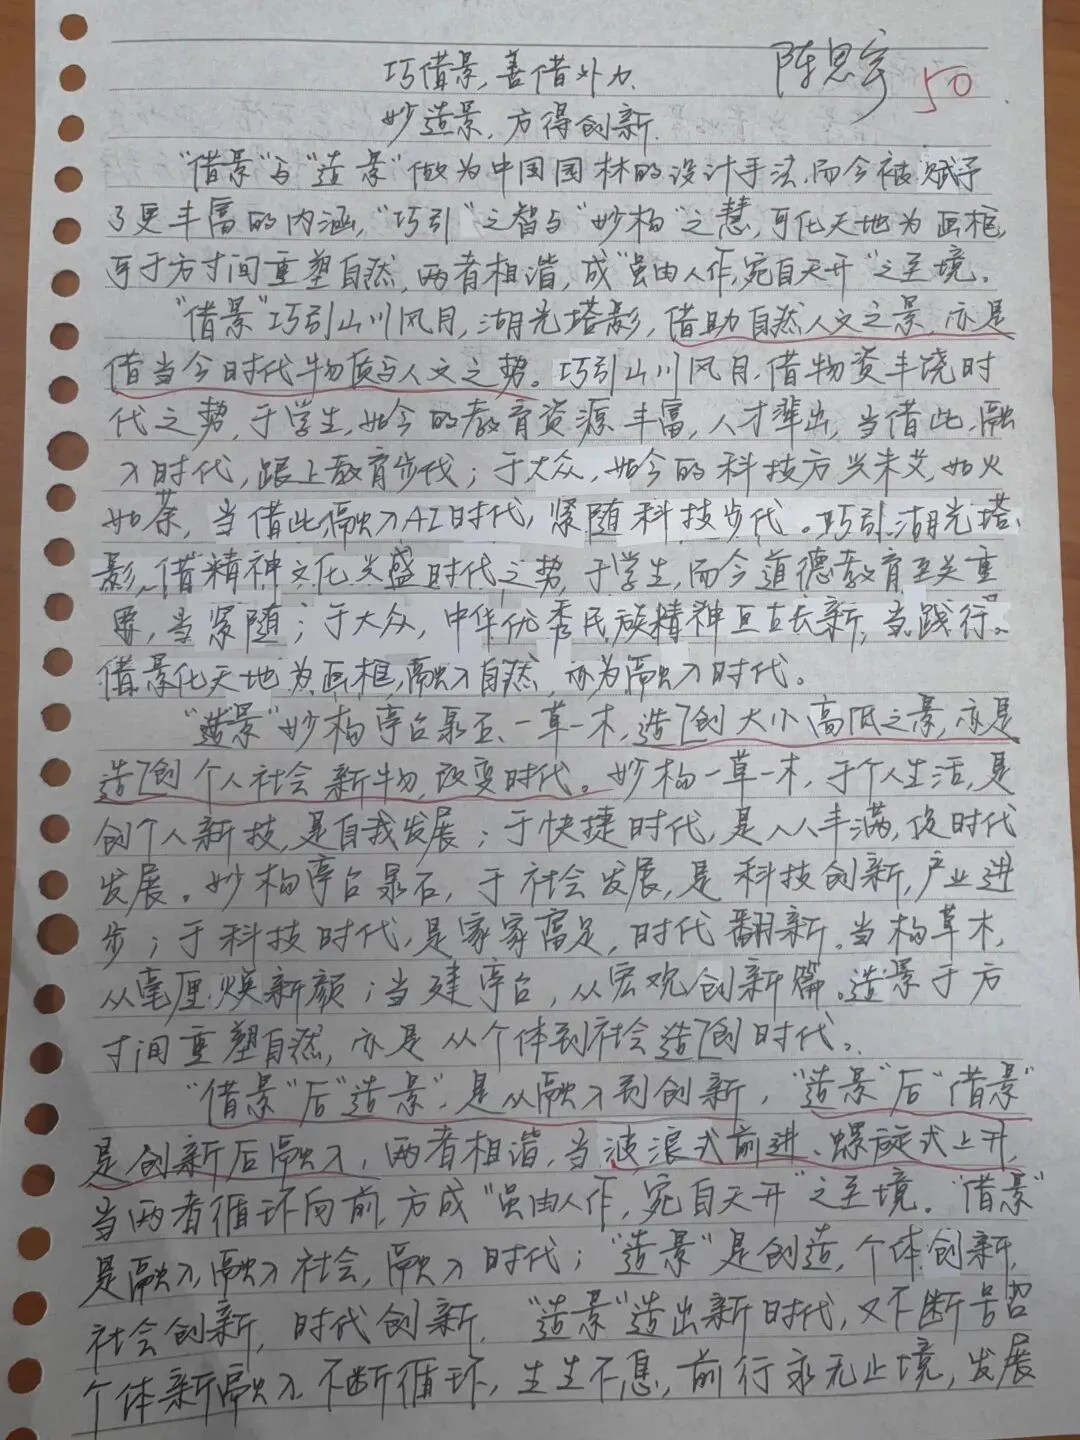 巧借景，善借外力 陈思宇 50
妙造景，方得创新
“借景”与“造景”做为中国园林的设计手法，而今被赋予
了更丰富的内涵，“巧引”之智与“妙构”之慧，可化天地为画框，
可于方寸间重塑自然，两者相谐，成“虽由人作，宛自天开”之至境。
“借景”巧引山川风月，湖光塔影，借助自然人文之景，亦是
借当今时代物质与人文之势。巧引山川风月，借物资丰饶时
代之势，于学生，如今的教育资源丰富，人才辈出，当借此，融
入时代，跟上教育步伐；于大众，如今的科技方兴未艾，如火
如荼，当借此融入AI时代，紧随科技步伐。巧引湖光塔
影，借精神文化兴盛时代之势，于学生，而今道德教育至关重
要，当紧随；于大众，中华优秀民族精神亘古长新，当践行。
借景化天地为画框，融入自然，亦为融入时代。
“造景”妙构亭台泉石、一草一木，造创大小高低之景，亦是
造创个人社会新物，改变时代。妙构一草一木，于个人生活，是
创个人新技，是自我发展；于快捷时代，是人人丰满，促时代
发展。妙构亭台泉石，于社会发展，是科技创新，产业进
步；于科技时代，是家家富足，时代翻新。当构草木，
从毫厘焕新颜；当建亭台，从宏观创新篇。造景于方
寸间重塑自然，亦是从个体到社会造创时代。
“借景”后“造景”，是从融入到创新，“造景”后“借景”
是创新后融入，两者相谐，当波浪式前进、螺旋式上升，
当两者循环向前，方成“虽由人作，宛自天开”之至境。“借景”
是融入，融入社会，融入时代；“造景”是创造，个体创新，
社会创新，时代创新，“造景”造出新时代，又不断号召
个体新融入，不断循环，生生不息，前行永无止境，发展